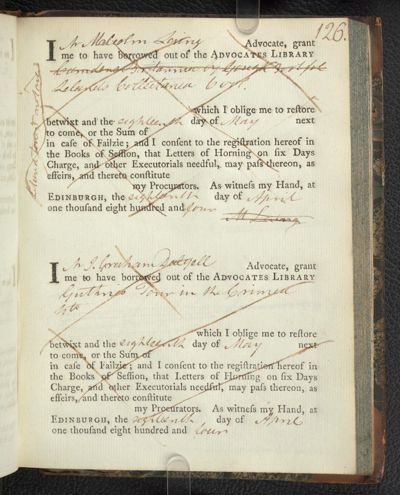 126.
I Mr Malcolm Laing Advocate, grant
me to have borrowed out of the ADVOCATES LIBRARY
Lelands Collectanea 6 vol.
which I oblige me to reſtore
betwixt and the eighteenth day of May next
to come, or the Sum of
in caſe of Failzie; and I conſent to the regiſtration hereof in
the Books of Seſſion, that Letters of Horning on ſix Days
Charge, and other Executorials needful, may paſs thereon, as
effeirs, and thereto conſtitute
my Procurators. As witneſs my Hand, at
EDINBURGH, the eighteenth day of April
one thouſand eight hundred and four
M Laing
I Mr J. Graham Dalyell Advocate, grant
me to have borrowed out of the ADVOCATES LIBRARY
Guthries Tour in the Crimea
4to
which I oblige me to reſtore
betwixt and the eighteenth day of May next
to come, or the Sum of
in caſe of Failzie; and I conſent to the regiſtration hereof in
the Books of Seſſion, that Letters of Horning on ſix Days
Charge, and other Executorials needful, may paſs thereon, as
effeirs, and thereto conſtitute
my Procurators. As witneſs my Hand, at
EDINBURGH, the eighteenth day of April
one thouſand eight hundred and four